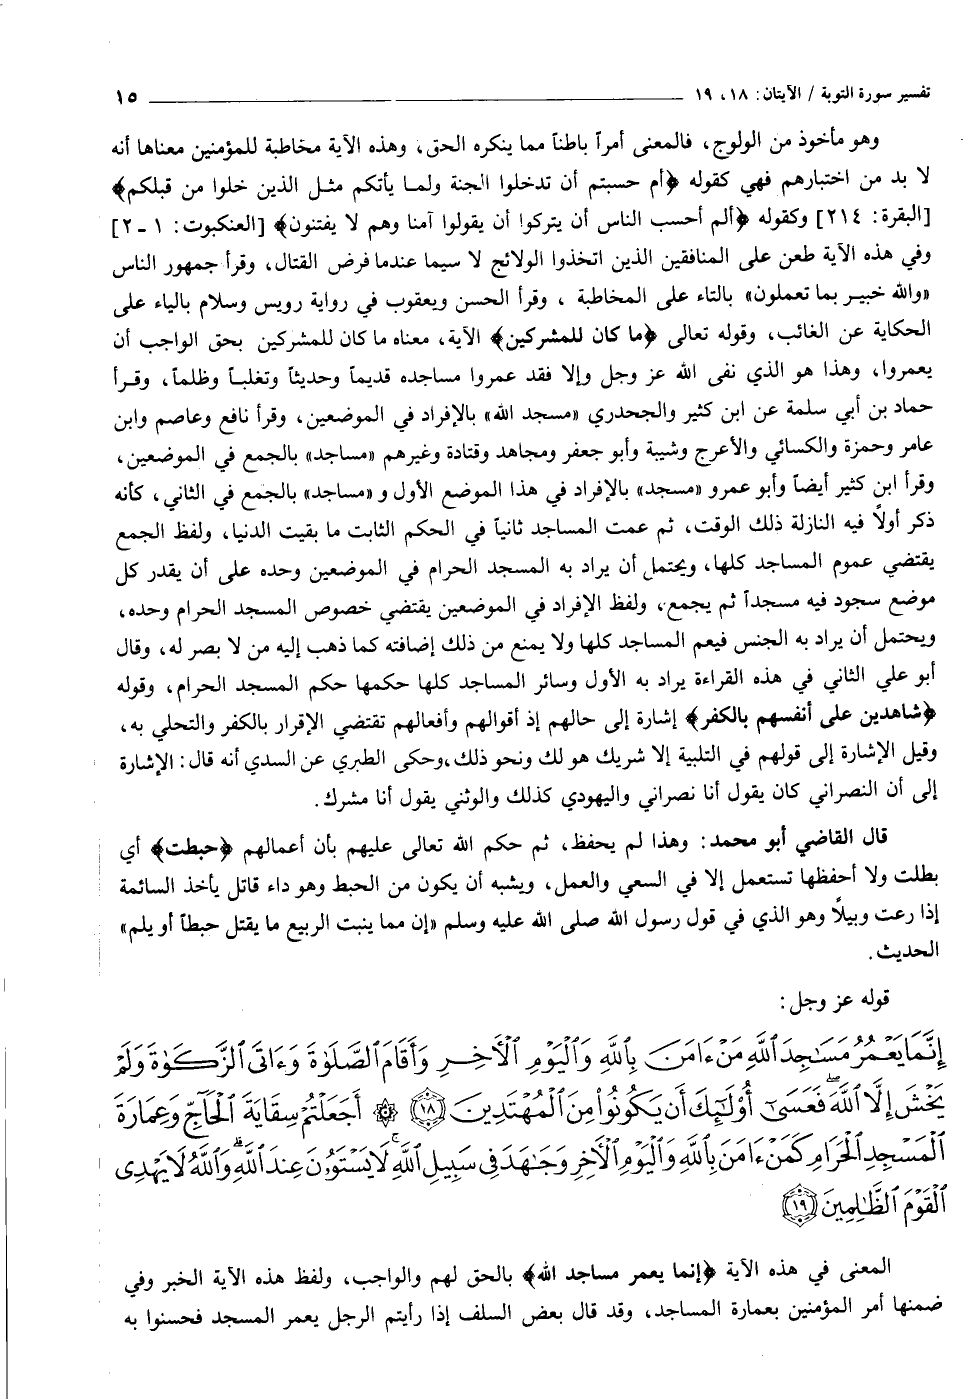 تفسير سورة التوبة / الآيتان: ١٨، ١٩ ـــــــــ ١٥
وهو مأخوذ من الولوج، فالمعنى أمراً باطناً مما ينكره الحق، وهذه الآية مخاطبة للمؤمنين معناها أنه
لا بد من اختبارهم فهي كقوله ﴿أم حسبتم أن تدخلوا الجنة ولما يأتكم مثل الذين خلوا من قبلكم﴾
[البقرة: ٢١٤] وكقوله ﴿ألم أحسب الناس أن يتركوا أن يقولوا آمنا وهم لا يفتنون﴾ [العنكبوت: ١ -٢]
وفي هذه الآية طعن على المنافقين الذين اتخذوا الولائج لا سيما عندما فرض القتال، وقرأ جمهور الناس
«والله خبير بما تعملون» بالتاء على المخاطبة ، وقرأ الحسن ويعقوب في رواية رويس وسلام بالياء على
الحكاية عن الغائب، وقوله تعالى ﴿ما كان للمشركين﴾ الآية، معناه ما كان للمشركين بحق الواجب أن
يعمروا، وهذا هو الذي نفى الله عز وجل وإلا فقد عمروا مساجده قديماً وحديثاً وتغلباً وظلماً، وقرأ
حماد بن أبي سلمة عن ابن كثير والجحدري «مسجد الله» بالإفراد في الموضعين، وقرأ نافع وعاصم وابن
عامر وحمزة والكسائي والأعرج وشيبة وأبو جعفر ومجاهد وقتادة وغيرهم «مساجد» بالجمع في الموضعين،
وقرأ ابن كثير أيضاً وأبو عمرو «مسجد» بالإفراد في هذا الموضع الأول و «مساجد» بالجمع في الثاني، كأنه
ذكر أولاً فيه النازلة ذلك الوقت، ثم عمت المساجد ثانياً في الحكم الثابت ما بقيت الدنيا، ولفظ الجمع
يقتضي عموم المساجد كلها، ويحتمل أن يراد به المسجد الحرام في الموضعين وحده على أن يقدر كل
موضع سجود فيه مسجداً ثم يجمع، ولفظ الإفراد في الموضعين يقتضي خصوص المسجد الحرام وحده،
ويحتمل أن يراد به الجنس فيعم المساجد كلها ولا يمنع من ذلك إضافته كما ذهب إليه من لا بصر له، وقال
أبو علي الثاني في هذه القراءة يراد به الأول وسائر المساجد كلها حكمها حكم المسجد الحرام، وقوله
﴿شاهدين على أنفسهم بالكفر﴾ إشارة إلى حالهم إذ أقوالهم وأفعالهم تقتضي الإقرار بالكفر والتحلي به،
وقيل الإشارة إلى قولهم في التلبية إلا شريك هو لك ونحو ذلك،وحكى الطبري عن السدي أنه قال: الإشارة
إلى أن النصراني كان يقول أنا نصراني واليهودي كذلك والوثني يقول أنا مشرك.
قال القاضي أبو محمد: وهذا لم يحفظ، ثم حكم الله تعالى عليهم بأن أعمالهم ﴿حبطت﴾ أي
بطلت ولا أحفظها تستعمل إلا في السعي والعمل، ويشبه أن يكون من الحبط وهو داء قاتل يأخذ السائمة
إذا رعت وبيلاً وهو الذي في قول رسول الله صلى الله عليه وسلم «إن مما ينبت الربيع ما يقتل حبطاً أو يلم»
الحديث.
قوله عز وجل:
إِنَّمَا يَعْمُرُ مَسَاجِدَ ٱللَّهِ مَنْ ءَامَنَ بِٱللَّهِ وَٱلْيَوْمِ ٱلْأَخِرِ وَأَقَامَ ٱلصَّلَوٰةَ وَءَاتَى ٱلزَّكَوٰةَ وَلَمْ
يَخْشَ إِلَّا ٱللَّهَ ۖ فَعَسَىٰٓ أُو۟لَٰٓئِكَ أَن يَكُونُوا۟ مِنَ ٱلْمُهْتَدِينَ ﴿١٨﴾ ۞ أَجَعَلْتُمْ سِقَايَةَ ٱلْحَآجِّ وَعِمَارَةَ
ٱلْمَسْجِدِ ٱلْحَرَامِ كَمَنْ ءَامَنَ بِٱللَّهِ وَٱلْيَوْمِ ٱلْأَخِرِ وَجَٰهَدَ فِى سَبِيلِ ٱللَّهِ ۚ لَا يَسْتَوُۥنَ عِندَ ٱللَّهِ ۗ وَٱللَّهُ لَا يَهْدِى
ٱلْقَوْمَ ٱلظَّٰلِمِينَ ﴿١٩﴾
المعنى في هذه الآية ﴿إنما يعمر مساجد الله﴾ بالحق لهم والواجب، ولفظ هذه الآية الخبر وفي
ضمنها أمر المؤمنين بعمارة المساجد، وقد قال بعض السلف إذا رأيتم الرجل يعمر المسجد فحسنوا به